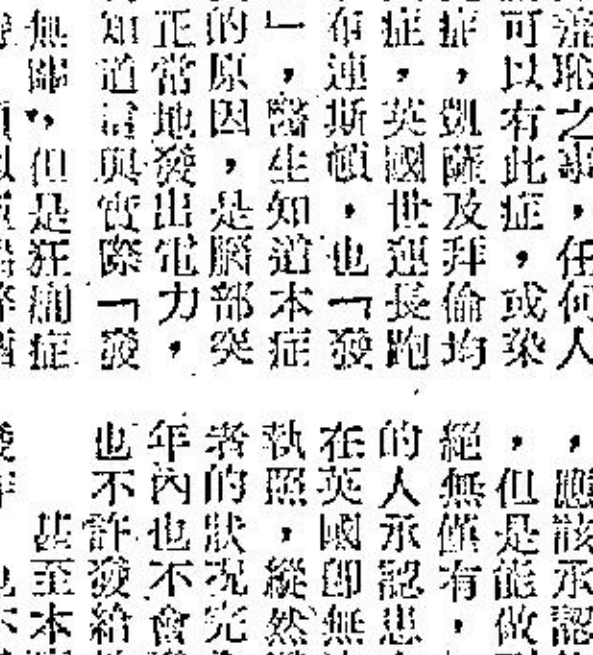 流恥之事，任何人
可以有此症，或染
症，凱薩及拜倫均
症，英國世運長跑
布連斯頓，也「發
」，醫生知道本症
的原因，是腦部突
正常地發出電力，
知道這與實際「發
無，但是狂癇症
，應該承認
，但是能做
絕無僅有，
的人承認患
在英國即無
執照，縱然
者的狀況完
年內也不會
也不許發給
甚至本